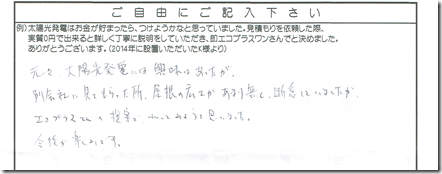 ご自由にご記入下さい
例)太陽光発電はお金が貯まったら、つけようかなと思っていました。見積もりを依頼した際、
実質0円で出来ると詳しく丁寧に説明をしていただき、即エコプラスワンさんでと決めました。
ありがとうございます。(2014年に設置いただいたK様より)
元々、太陽光発電には興味はあったが、
別会社に見てもらった所、屋根の広さがあまり無く、断念していましたが、
エコプラスさんの提案で、やってみようと思いました。
今後が楽しみです。